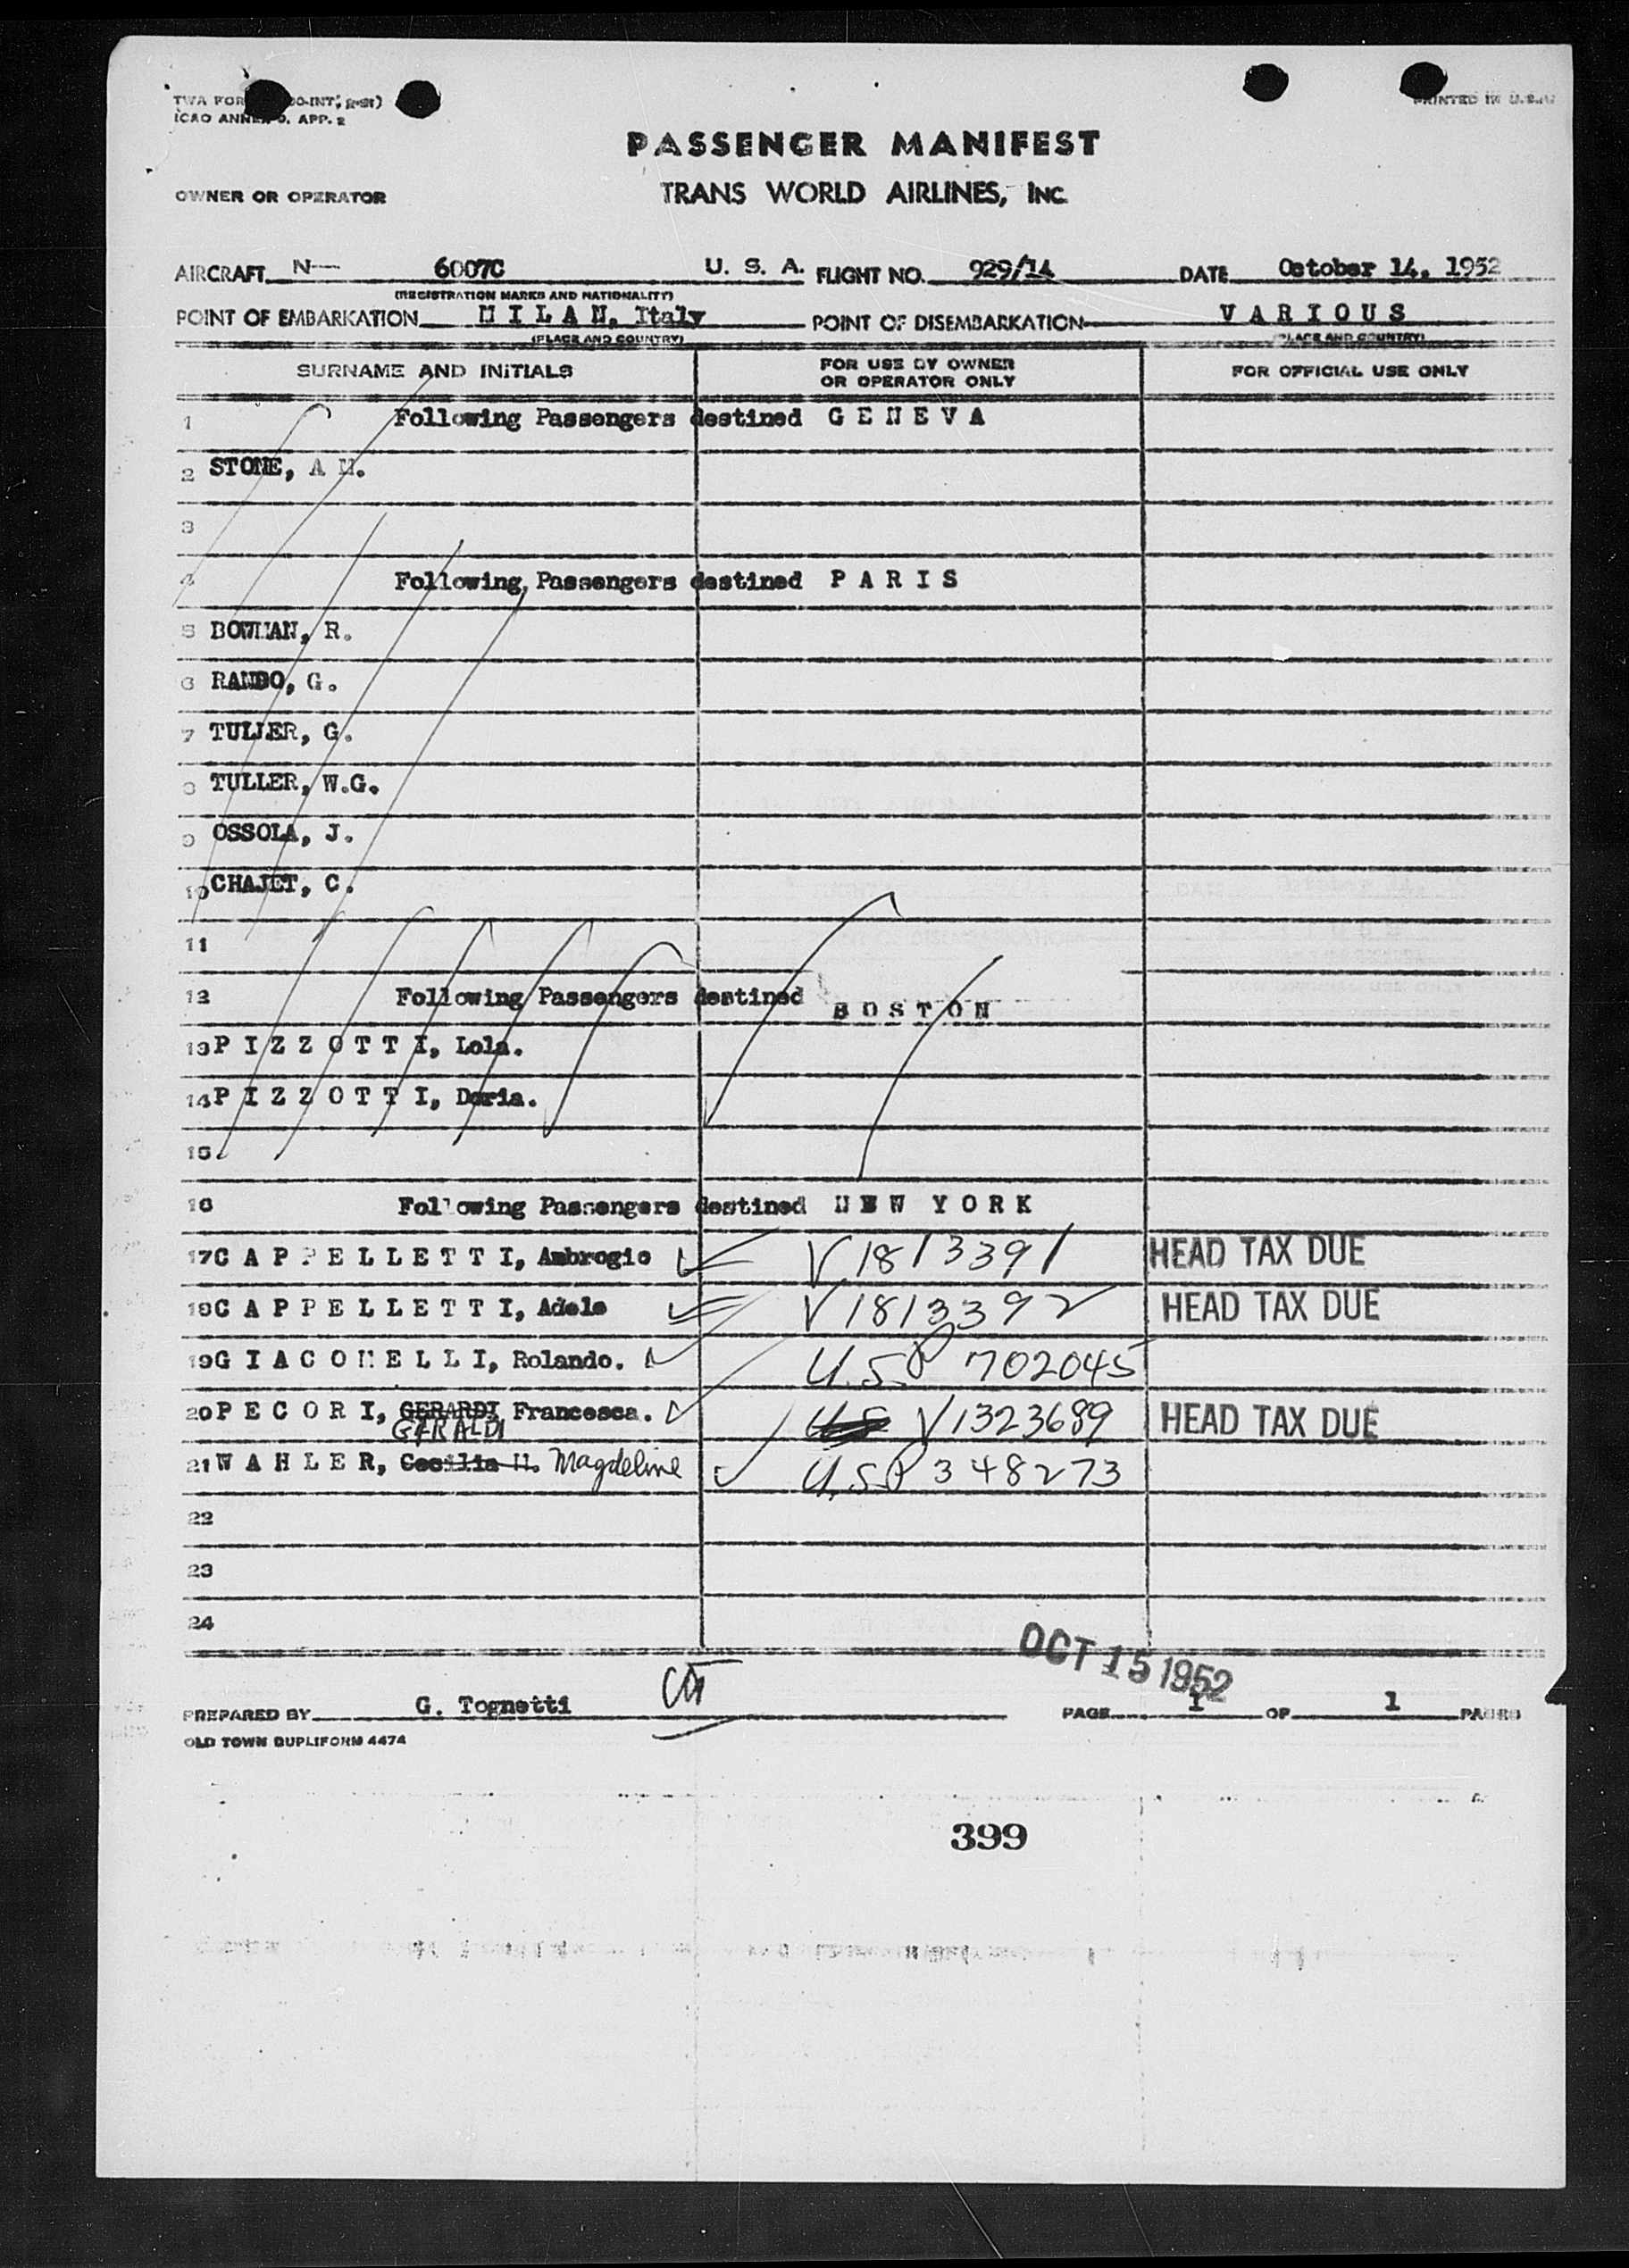 PRINTED IN U.S.A.
ICAO ANNEX 9. APP. 2
PASSENGER MANIFEST
OWNER OR OPERATOR TRANS WORLD AIRLINES, INC.
AIRCRAFT N— 6007C U. S. A. FLIGHT NO. 929/14 DATE October 14, 1952
(REGISTRATION MARKS AND NATIONALITY)
POINT OF EMBARKATION M I L A N, Italy POINT OF DISEMBARKATION V A R I O U S
(PLACE AND COUNTRY) (PLACE AND COUNTRY)
SURNAME AND INITIALS FOR USE BY OWNER OR OPERATOR ONLY FOR OFFICIAL USE ONLY
1 Following Passengers destined G E N E V A
2 STONE, A M.
3
4 Following Passengers destined P A R I S
5 BOWMAN, R.
6 RANDO, G.
7 TULLER, G.
8 TULLER, W.G.
9 OSSOLA, J.
10 CHAJET, C.
11
12 Following Passengers destined B O S T O N
13 P I Z Z O T T I, Lola.
14 P I Z Z O T T I, Doria.
15
16 Following Passengers destined N E W Y O R K
17 C A P P E L L E T T I, Ambrogio V1813391 HEAD TAX DUE
18 C A P P E L L E T T I, Adele V1813392 HEAD TAX DUE
19 G I A C O M E L L I, Rolando. U.S.P 702045
20 P E C O R I, GERARDI Francesca. US V1323689 HEAD TAX DUE
GERALDI
21 W A H L E R, Cecilia M. Magdeline U.S.P 348273
22
23
24
OCT 15 1952
PREPARED BY G. Tognetti PAGE 1 OF 1 PAGES
OLD TOWN DUPLIFORM 4474
399